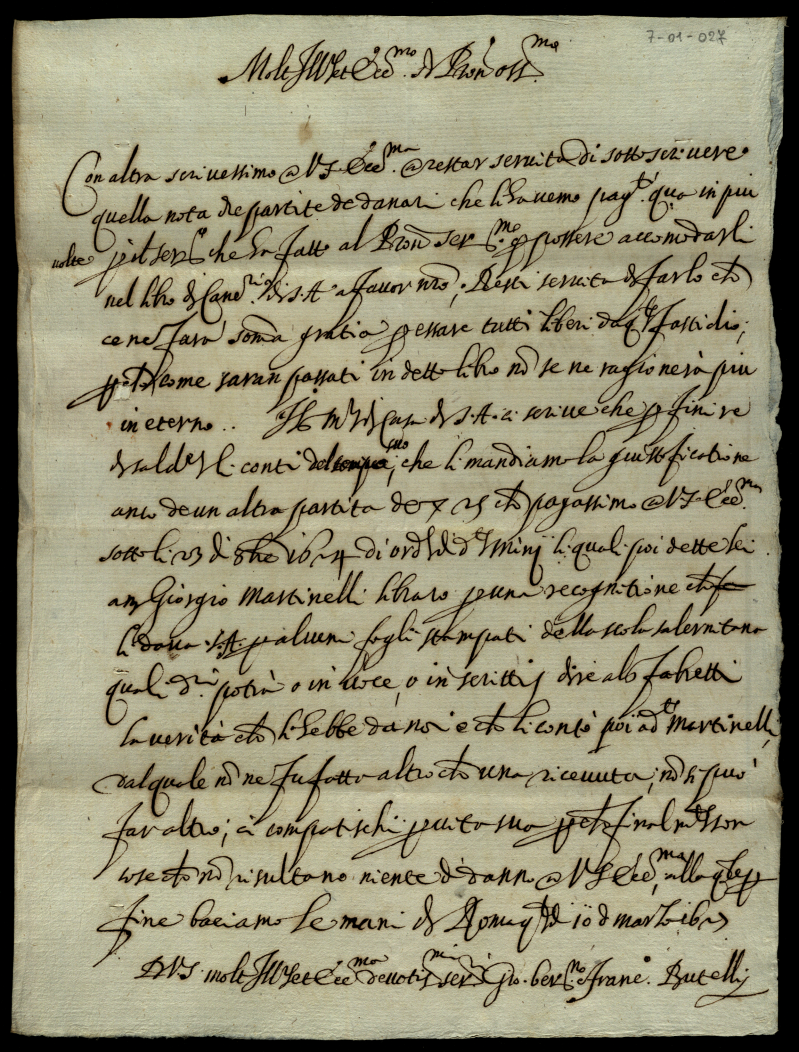 7-01-027
Molt Ill.re et Ecc.mo S.r Pron oss.mo
Con altra scrivessimo a V.S. Ecc.ma a restar servita di sottoscrivere
quella nota de partite de danari che li havemo pag.ti qua in piu
volte p il ser.o che ha fatto al Pron Ser.mo p possere accomodarli
nel libro di S.A. a favor nro; Resti servita di farlo che
ce ne farà somma gratia p essare tutti liberi da q.to fastidio;
p che come saran passati in detto libro nõ se ne ragionerà piu
in eterno.. Il di Casa di S.A. ci scrive che p finire
di saldare li conti suo, che li mandiamo la giustificatione
anco de un altra partita de 25 che pagassimo a V.S. Ecc.ma
sotto li 23 di 8bre 1624 di ord.e di d.o li quali poi dette lei
a Giorgio Martinelli libraro p una recognitione che
li dava S.A. p alcuni fogli stampati della scola salernitana
quali potrà o in voce, o in scritti dire al Fabretti
la verità che li hebbe da noi e che li contò poi ad.to Martinelli,
dal quale nõ ne fu fatto altro che una ricevuta, nõ si può
far altro; ci compatischi p vita sua p che final.te son
cose che nõ risultano niente di danno a V.S. Ecc.ma, alla q.le p
fine baciamo le mani di Roma q.to dì 10 di marzo
D V.S. molt Ill.re et Ecc.ma devotis.mi ser.ri Gio. e Franc. Butelli